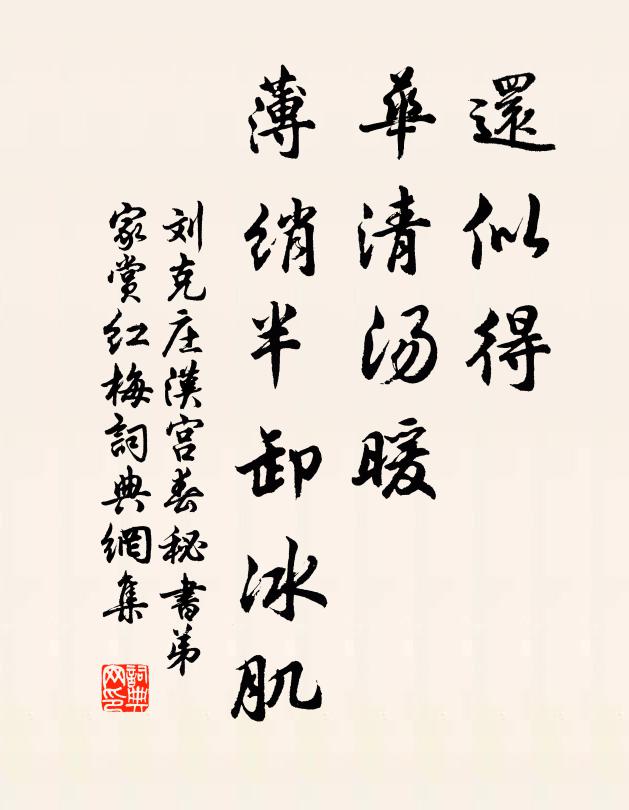 還似得
華清汤暖
薄綃半卸冰肌
刘克庄漢宮春秘書弟
家赏红梅詞典網集
詞典网印